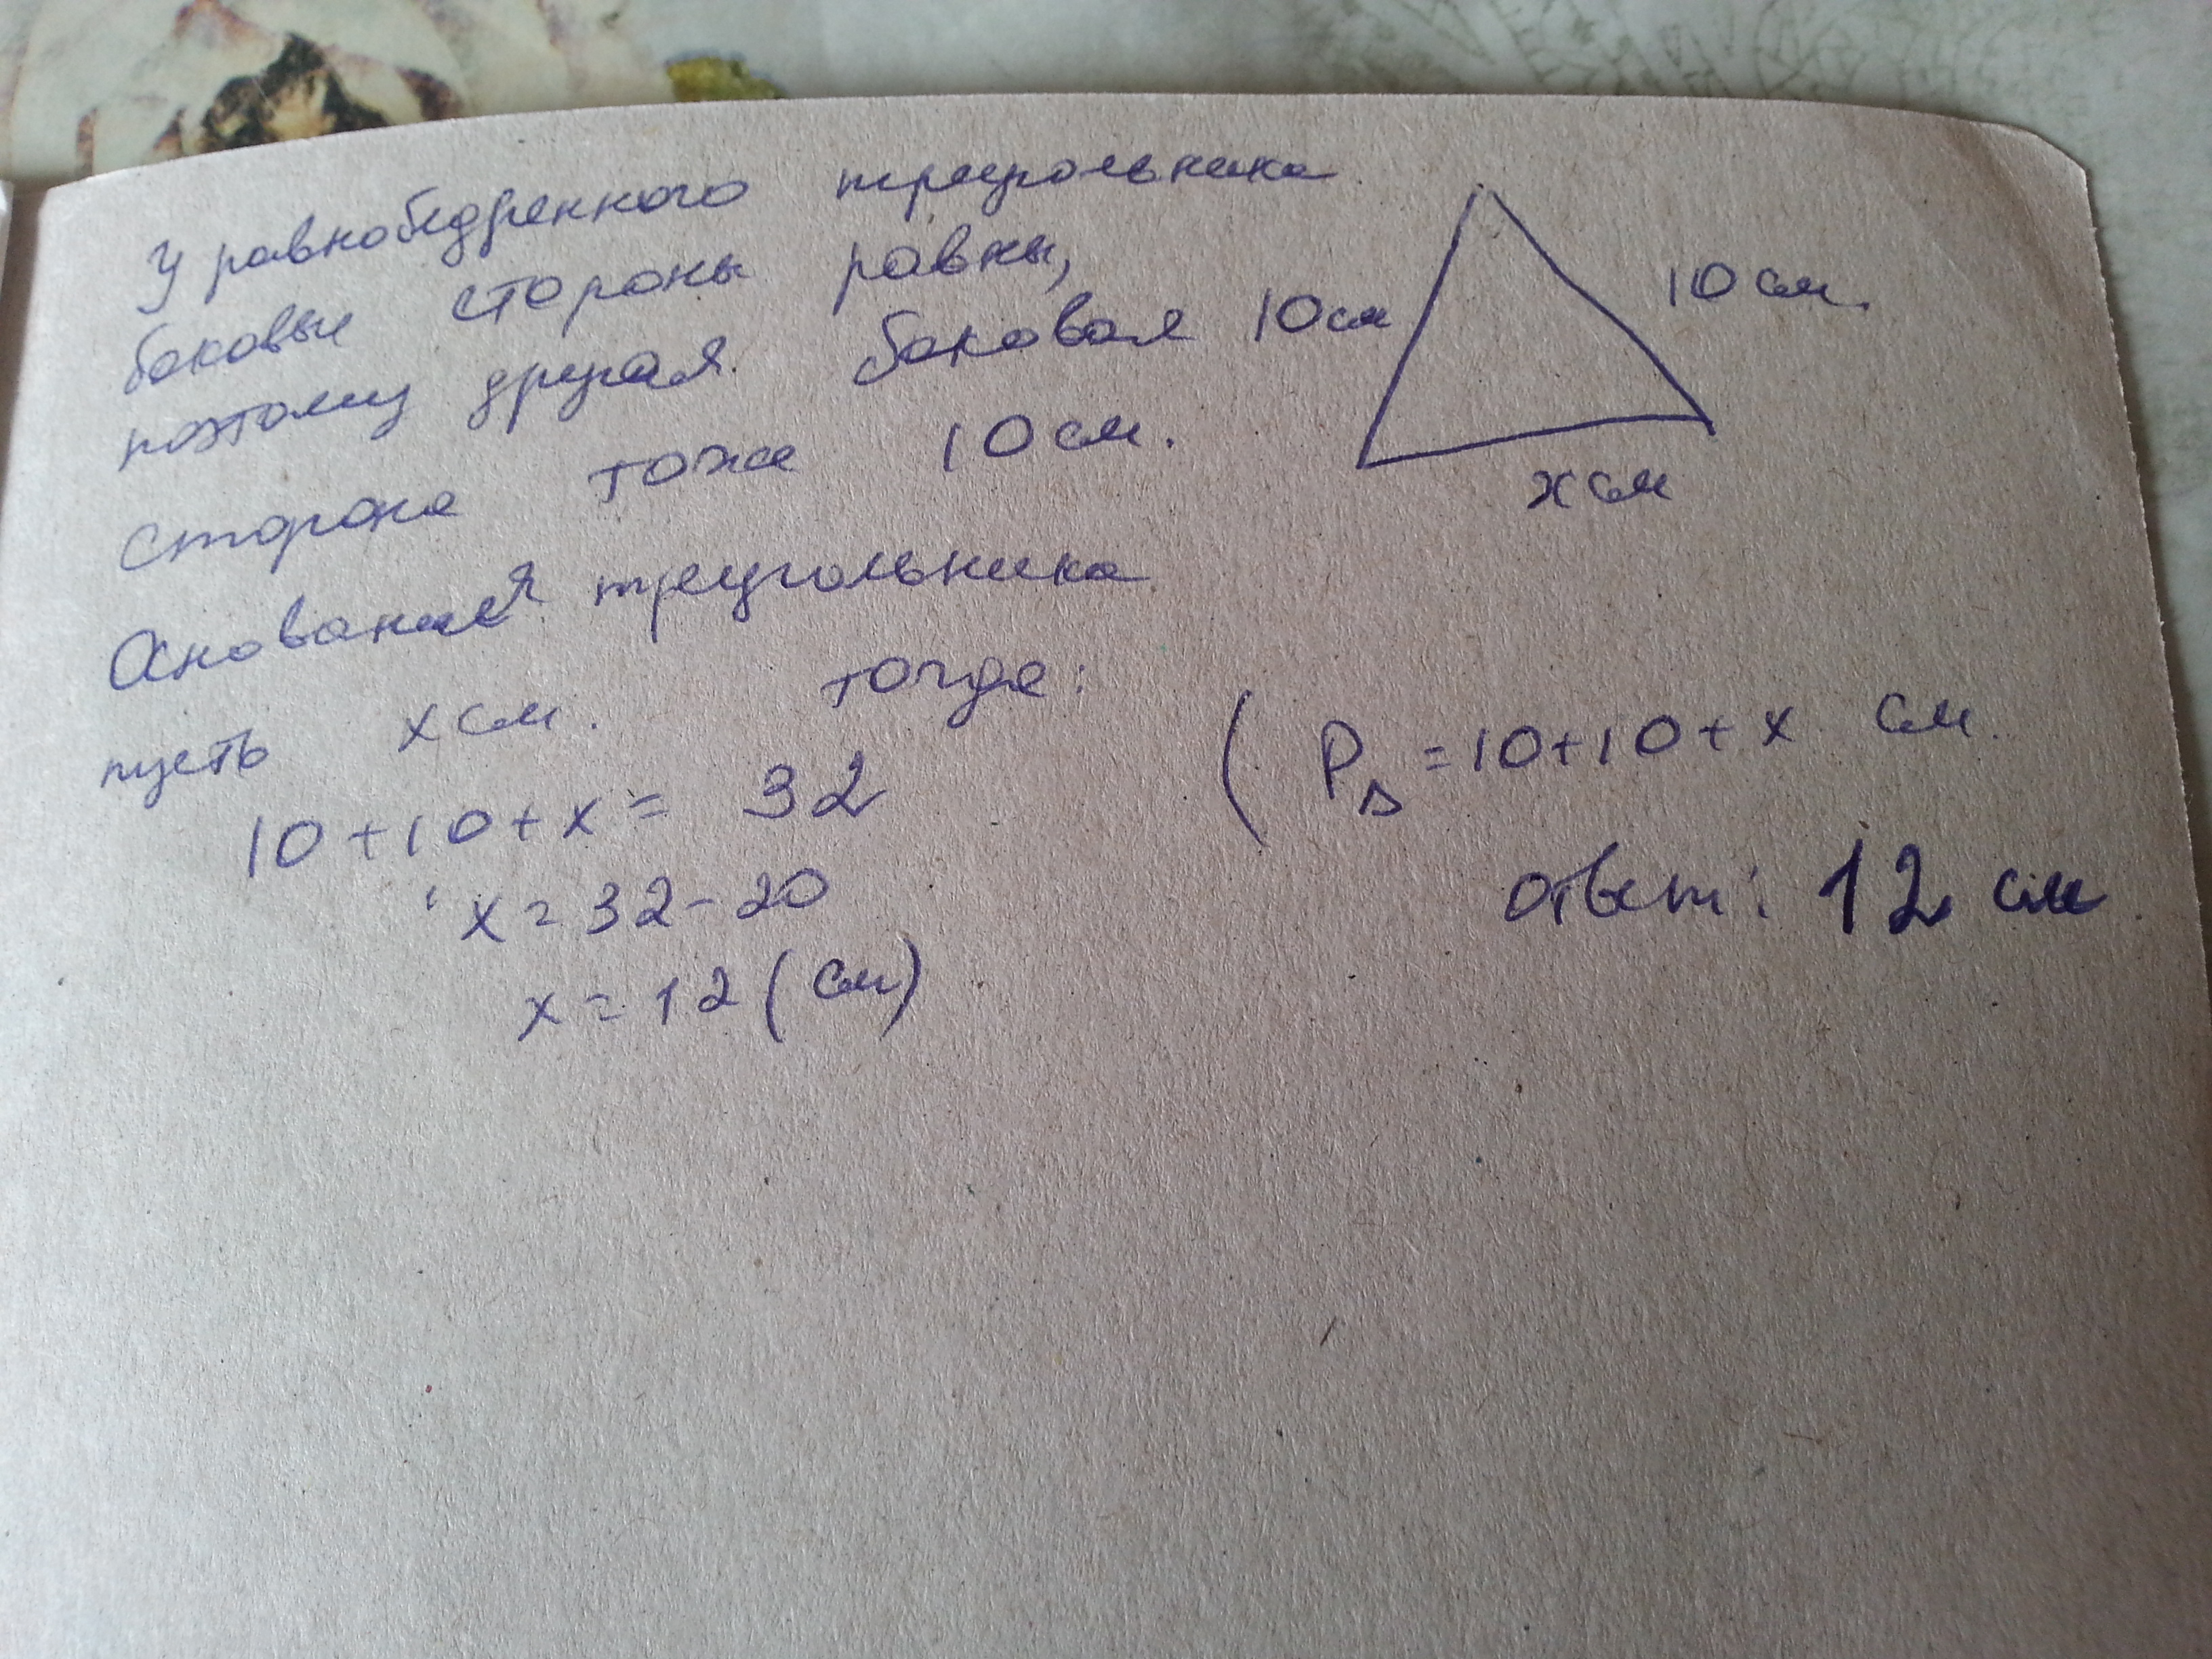 У равнобедренного треугольника
боковые стороны равны,
поэтому другая боковая
сторона тоже 10 см.
10 см
10 см.
x см
Основания треугольника
пусть x см. тогда:
10 + 10 + x = 32
x = 32 - 20
x = 12 (см)
( PΔ = 10 + 10 + x см.
ответ: 12 см